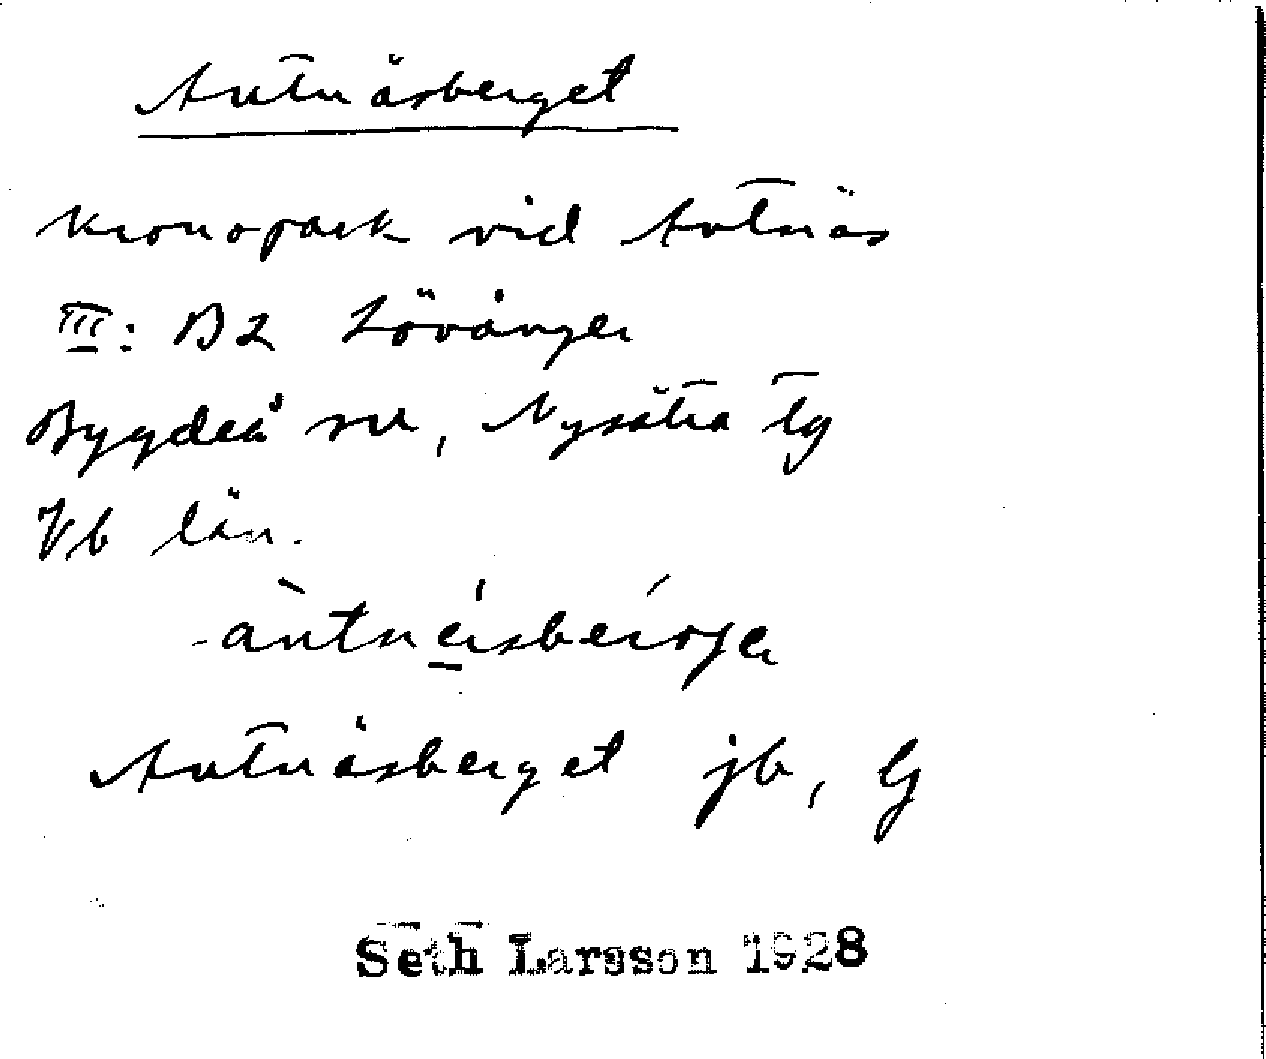 Avtnäsberget
Kronopark vid Avtnäs
III: B2 Lövånger
Bygdeå sn, Nysätra tg
Vb län.
Avtnäsberget jb, Gj
Seth Larsson 1928